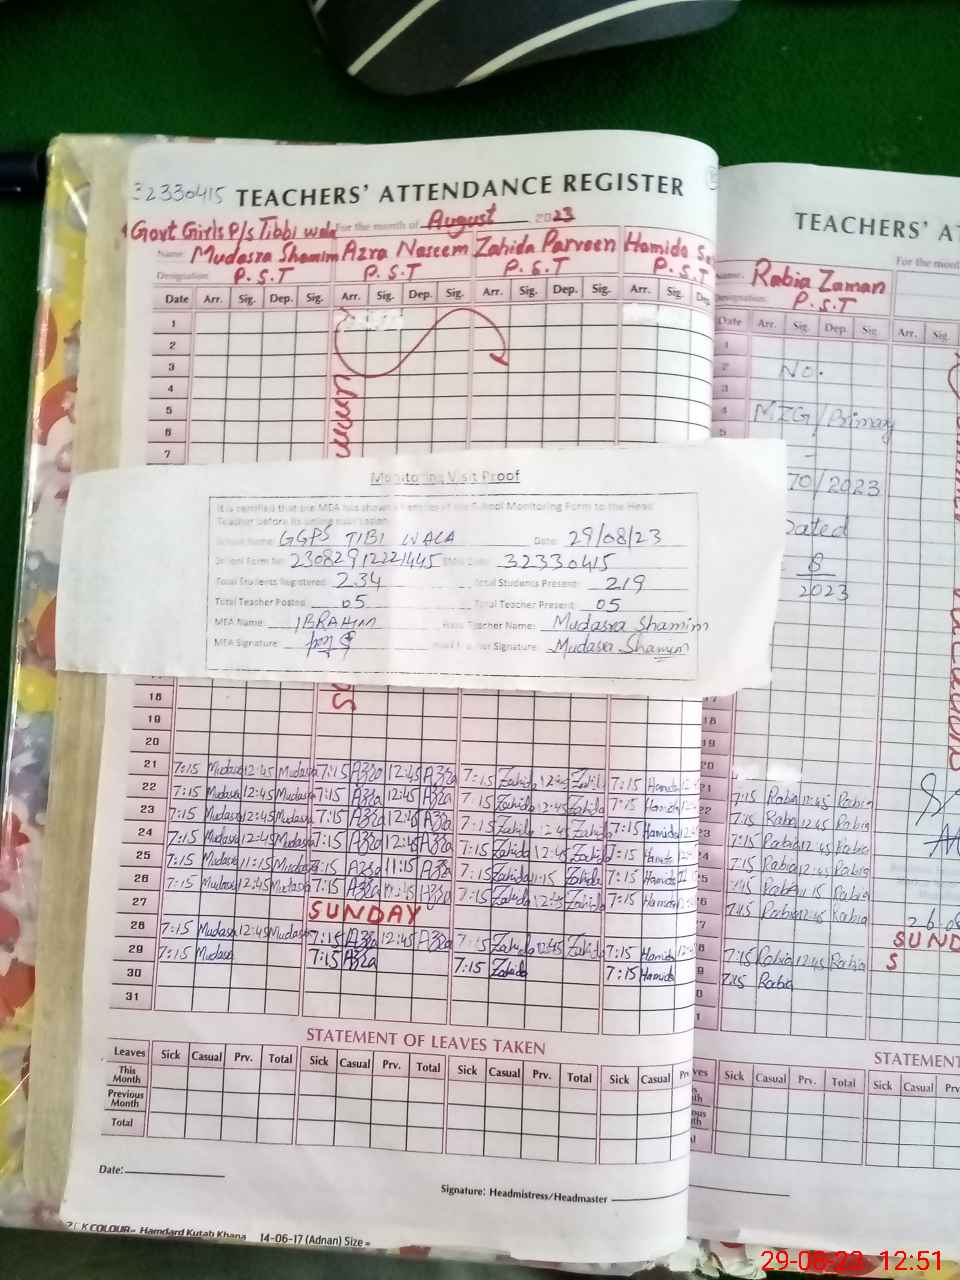 32330415 TEACHERS' ATTENDANCE REGISTER
Govt Girls P/s Tibbi wala For the month of August 2023
Name: Mudasra Shamim Azra Naseem Zahida Parveen Hamida
Designation: P.S.T P.S.T P.S.T P.S.T
Date Arr. Sig. Dep. Sig. Arr. Sig. Dep. Sig. Arr. Sig. Dep. Sig. Arr. Sig. Dep
1
2
3
4
5
6
7
Monitoring Visit Proof
It is certified that the MEA has shown
Teacher before
School Name: GGPS TIBI WALA Date: 29/08/23
School Form No: 23082912221445 32330415
Total Students Registered: 234 Total Students Present: 219
Total Teacher Posted 05 Total Teacher Present: 05
MEA Name: IBRAHIM Head Teacher Name: Mudasra Shamim
MEA Signature: Signature: Mudasra Shamim
18
19
20
21 7:15 Mudasra 12:45 Mudasra 7:15 Azra 12:45 Azra 7:15 Zahida 12:45 Zahida 7:15 Hamida
22 7:15 Mudasra 12:45 Mudasra 7:15 Azra 12:45 Azra 7:15 Zahida 12:45 Zahida 7:15 Hamida
23 7:15 Mudasra 12:45 Mudasra 7:15 Azra 12:45 Azra 7:15 Zahida 12:45 Zahida 7:15 Hamida
24 7:15 Mudasra 12:45 Mudasra 7:15 Azra 12:45 Azra 7:15 Zahida 12:45 Zahida 7:15 Hamida
25 7:15 Mudasra 11:15 Mudasra 7:15 Azra 11:15 Azra 7:15 Zahida 11:15 Zahida 7:15 Hamida
26 7:15 Mudasra 12:45 Mudasra 7:15 Azra 12:45 Azra 7:15 Zahida 12:45 Zahida 7:15 Hamida
27 SUNDAY
28 7:15 Mudasra 12:45 Mudasra 7:15 Azra 12:45 Azra 7:15 Zahida 12:45 Zahida 7:15 Hamida
29 7:15 Mudasra 7:15 Azra 7:15 Zahida 7:15 Hamida
30
31
STATEMENT OF LEAVES TAKEN
Leaves Sick Casual Prv. Total Sick Casual Prv. Total Sick Casual Prv. Total Sick Casual
This Month
Previous Month
Total
Date:
Signature: Headmistress/Headmaster
COLOUR= Hamdard Kutab Khana 14-06-17 (Adnan) Size =
TEACHERS'
For the
Name: Rabia Zaman
Designation: P.S.T
Date Arr. Sig. Dep. Sig. Arr. Sig.
1
2 No.
3
4 MZG/Primary
70/2023
Dated
8
2023
18
19
20
7:15 Rabia 12:45 Rabia
7:15 Rabia 12:45 Rabia
7:15 Rabia 12:45 Rabia
7:15 Rabia 12:45 Rabia
7:15 Rabia 11:15 Rabia
7:15 Rabia 12:45 Rabia
SUND
7:15 Rabia 12:45 Rabia S
7:15 Rabia
STATEMENT
Sick Casual Prv. Total Sick Casual
29-08-23 12:51